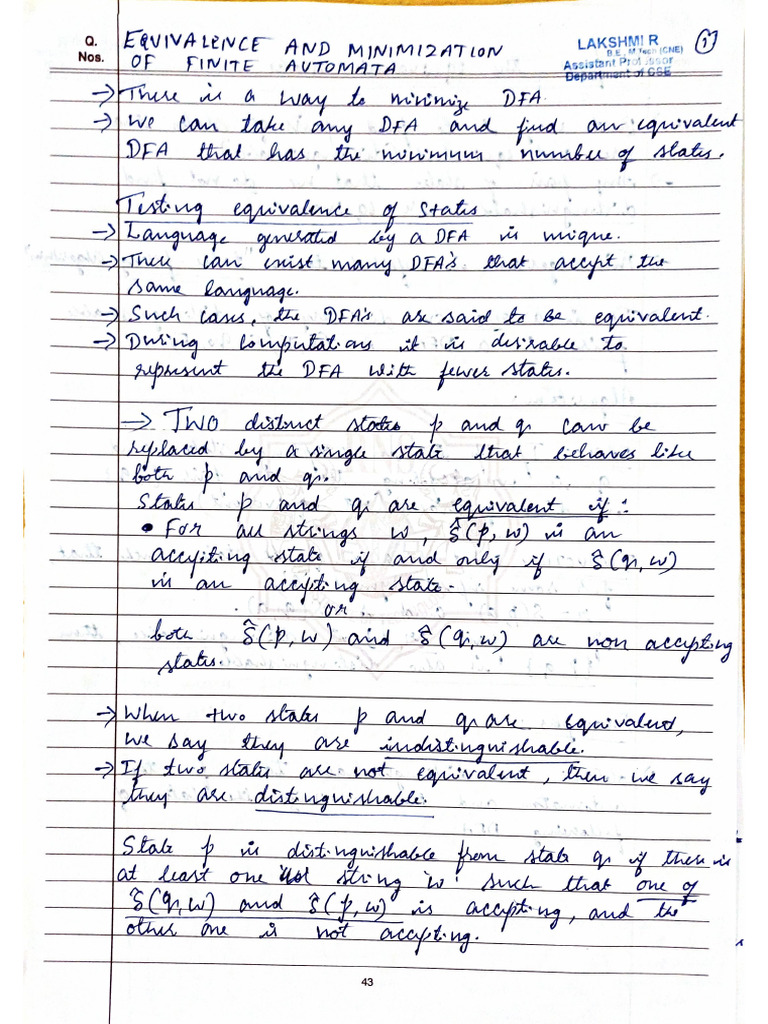 Q.
Nos.
EQUIVALENCE AND MINIMIZATION
OF FINITE AUTOMATA
LAKSHMI R
B.E., M.Tech (CNE)
Assistant Professor
Department of CSE
1
→ There is a way to minimize DFA.
→ We can take any DFA and find an equivalent
DFA that has the minimum number of states.
Testing equivalence of States
→ Language generated by a DFA is unique.
→ There can exist many DFA's that accept the
same language.
→ Such cases, the DFA's are said to be equivalent.
→ During computations it is desirable to
represent the DFA with fewer states.
→ TWO distinct states p and q can be
replaced by a single state that behaves like
both p and q.
States p and q are equivalent if:
• For all strings w, δ̂(p, w) is an
accepting state if and only if δ̂(q, w)
is an accepting state.
or
both δ̂(p, w) and δ̂(q, w) are non accepting
states.
→ When two states p and q are equivalent,
we say they are indistinguishable.
→ If two states are not equivalent, then we say
they are distinguishable.
State p is distinguishable from state q if there is
at least one string 'w' such that one of
δ̂(q, w) and δ̂(p, w) is accepting, and the
other one is not accepting.
43